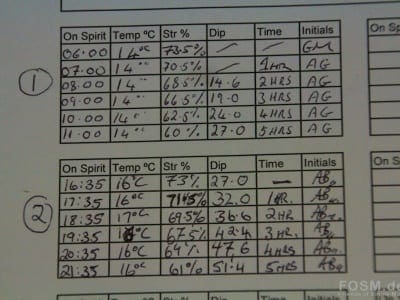 On Spirit Temp ºC Str % Dip Time Initials On Sp
06:00 14°C 73.5% — — GM
07:00 14°" 70.5% — 1HR AG
1 08:00 14°" 68.5% 14.6 2HRS AG
09:00 14°" 66.5% 19.0 3HRS AG
10:00 14°" 62.5% 24.0 4HRS AG
11:00 14°" 60% 27.0 5HRS AG
On Spirit Temp ºC Str % Dip Time Initials On S
16:35 16°C 73% 27.0 —
17:35 16°C 71.5% 32.0 1HR.
2 18:35 17°C 69.5% 36.6 2HR
19:35 16°C 67.5% 42.4 3HR.
20:35 16°C 64% 47.6 4HRS
21:35 16°C 61% 51.4 5HRS
FOSM.de